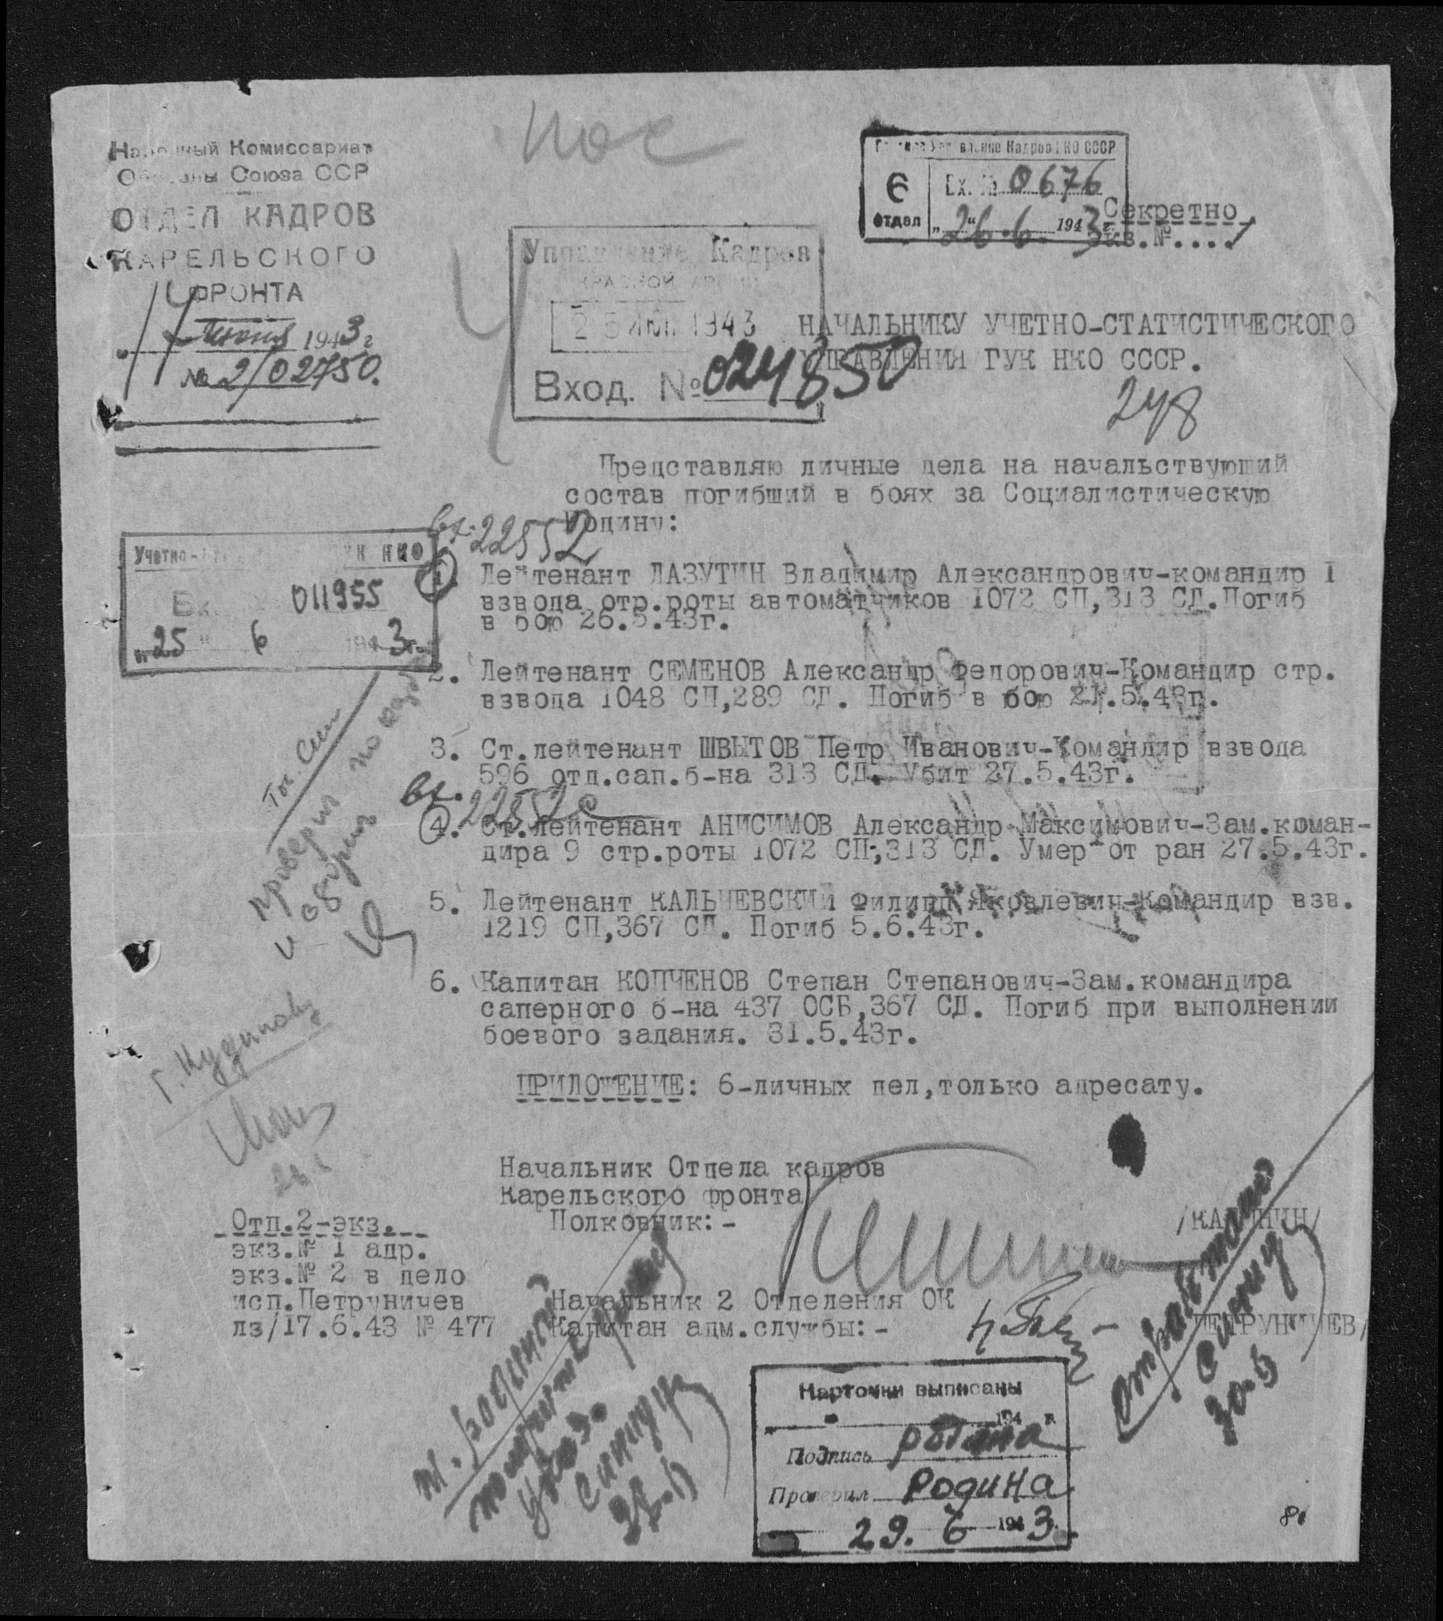 Народный Комиссариат
Обороны Союза ССР
ОТДЕЛ КАДРОВ
КАРЕЛЬСКОГО
ФРОНТА
17 Июня 1943 г
№ 2/02750.
Главное Управление Кадров НКО СССР
6
отдел
Вх. № 0676
„26“ 6. 1943 г.
Секретно
Экз.№....1
Управление Кадров
КРАСНОЙ АРМИИ
25 ИЮН 1943
Вход. № 024850
НАЧАЛЬНИКУ УЧЕТНО-СТАТИСТИЧЕСКОГО
УПРАВЛЕНИЯ ГУК НКО СССР.
248
Представляю личные дела на начальствующий
состав погибший в боях за Социалистическую
Родину:
вх. 22552
Учетно- ГУК НКО
Вх. 011955
„25“ 6 1943г.
1. Лейтенант ЛАЗУТИН Владимир Александрович-командир 1
взвода отр.роты автоматчиков 1072 СП,313 СД.Погиб
в бою 26.5.43г.
2. Лейтенант СЕМЕНОВ Александр Федорович-Командир стр.
взвода 1048 СП,289 СД. Погиб в бою 21.5.43г.
3. Ст.лейтенант ШВЫТОВ Петр Иванович-Командир взвода
596 отд.сап.б-на 313 СД. Убит 27.5.43г.
вх. 22552с
4. Ст.лейтенант АНИСИМОВ Александр Максимович-Зам.коман-
дира 9 стр.роты 1072 СП,313 СД. Умер от ран 27.5.43г.
5. Лейтенант КАЛЬЧЕВСКИЙ Филипп Яковлевич-Командир взв.
1219 СП,367 СД. Погиб 5.6.43г.
6. Капитан КОПЧЕНОВ Степан Степанович-Зам.командира
саперного б-на 437 ОСБ,367 СД. Погиб при выполнении
боевого задания. 31.5.43г.
ПРИЛОЖЕНИЕ: 6-личных дел,только адресату.
Начальник Отдела кадров
Карельского фронта
Полковник:- /КАЛИНИН/
Отп.2-экз.
экз.№ 1 адр.
экз.№ 2 в дело
исп.Петруничев
лз/17.6.43 № 477
Начальник 2 Отделения ОК
Капитан адм.службы:- ПЕТРУНИЧЕВ/
Карточки выписаны
194 г.
Подпись Родина
Проверил Родина
29. 6 1943.